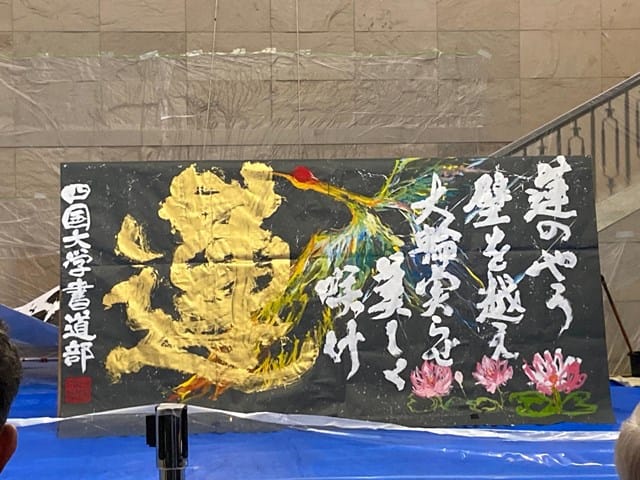 蓮のやう
壁を越え
大輪実らせ
美しく
咲け
道
四国大学書道部